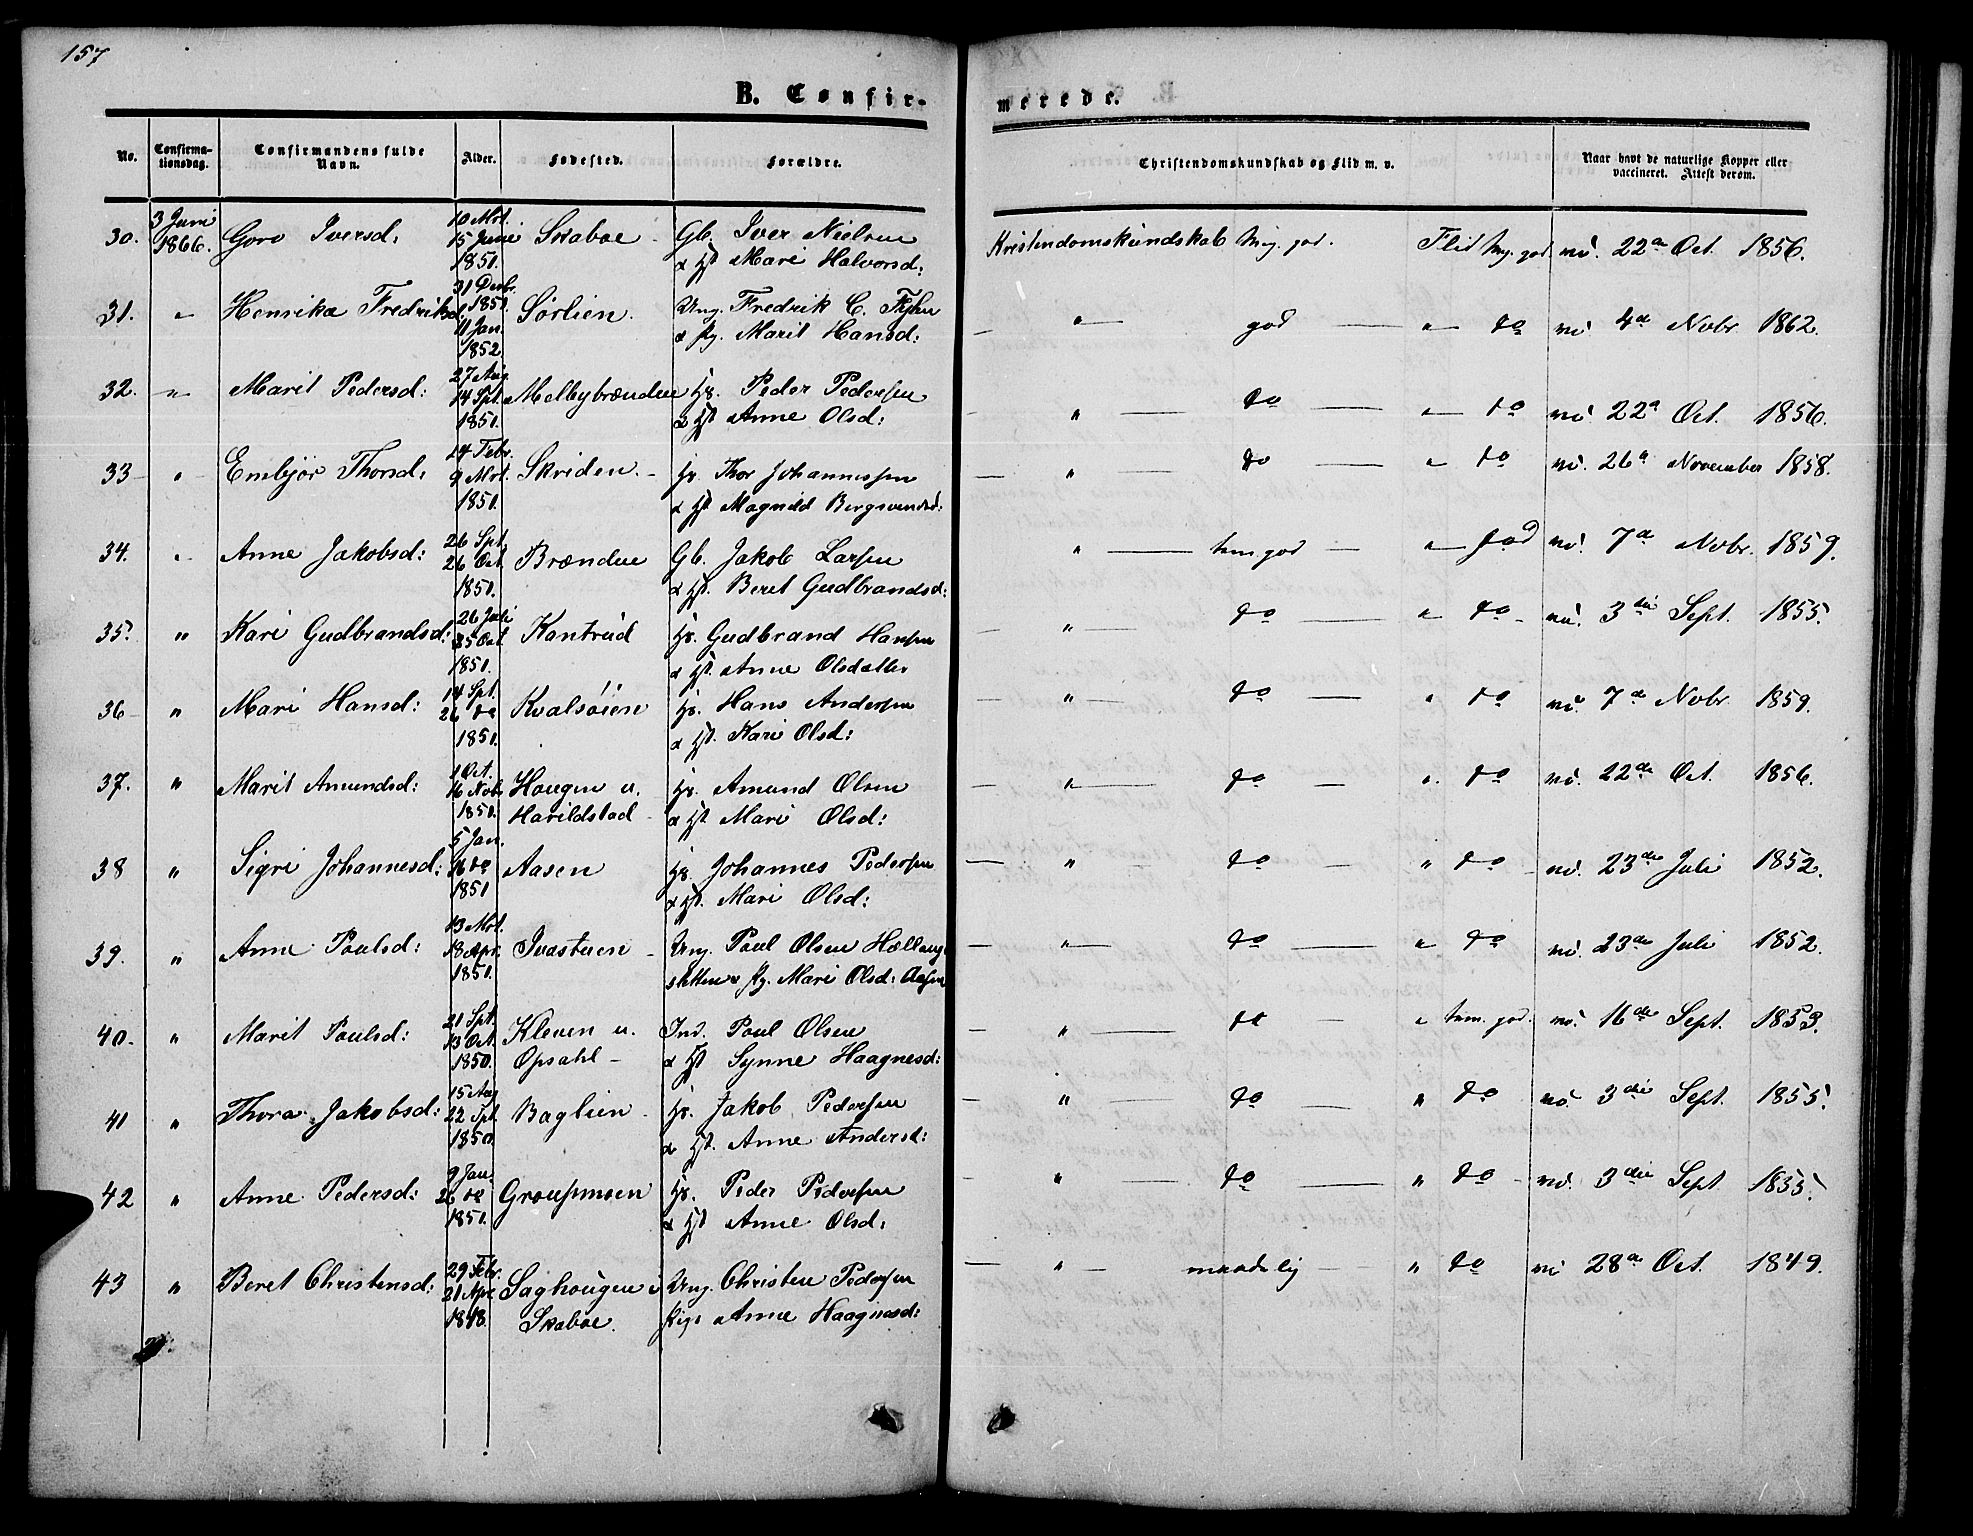 157
B. Confir-
merede.
No.
Confirma-
tionsdag.
Confirmandens fulde
Navn.
Alder.
Fødested.
Forældre.
Christendomskundskab og Flid m. v.
Naar havt de naturlige Kopper eller
vaccineret. Attest derom.
30. 3 Juni 1866. Goro Iversd: 10 Mrt. 15 Juni 1851. Skaboe - Gb. Iver Nielsen
& Hst Mari Halvorsd:
Kristendomskundskab mg. god. Flid mg. god vi. 22a Oct. 1856.
31. " Henrika Fredriksd. 31 Decbr. 1851. 11 Jan. 1852 Sørlien. Ung. Fredrik C.
& Pg. Marit Hansd:
" god " do vi. 4a Nvbr 1862.
32. " Marit Pedersd: 27 Aug. 14 Spt. 1851. Melbybrænden Hs. Peder Pedersen
& Hst Anne Olsd:
" do " do vi. 22a Oct. 1856.
33 " Embjør Thorsd, 14 Febr. 9 Mrt. 1851. Skriden. - Hs. Thor Johannessen
& Hst Magnild Bergsvendsd:
" do " do vi. 26a November 1858.
34. " Anne Jakobsd: 26 Spt. 26 Oct. 1851. Brænden Gb. Jakob Larsen
& Hst. Beret Gudbrandsd:
" tem. god " god vi. 7a Nvbr. 1859.
35. " Kari Gudbrandsd: 26 Juli 25 Oct 1851. Kantrud Hs. Gudbrand Hansen
& Hst. Anne Olsdatter
" do " do - vi. 3die Sept. 1855.
36 " Mari Hansd: 14 Spt. 26 do 1851. Kvalsøien Hs. Hans Andersen
& Hst. Kari Olsd:
" do " do vi. 7a Nvbr. 1859.
37. " Marit Amundsd: 1 Oct. 16 Nvb. 1851. Hougen u. Harildstad - Hs. Amund Olsen
& Hst Mari Olsd:
" do " do vi. 22de Oct. 1856.
38 " Sigri Johannesd: 5 Jan. 16 do 1851 Aasen Hs. Johannes Pedersen
& Hst. Mari Olsd:
" do " do - vi. 23de Juli 1852.
39. " Anne Paulsd: 13 Mrt. 18 Apr. 1851. Ivastuen - Ung. Paul Olsen
& Pg. Mari Olsd:
" do " do vi. 23de Juli 1852.
40. " Marit Paulsd: 21 Spt. 13 Oct. 1850. Kleven u. Opsahl - Ind. Paul Olsen
& Hst Synne Haagnesd:
" do " tem. god. vi. 16de Sept. 1853.
41 " Thora Jakobsd: 15 Aug 22 Spt. 1850. Baglien - Hs. Jakob Pedersen
& Hst. Anne Andersd:
" do " do vi. 3die Sept. 1855.
42 " Anne Pedersd: 9 Jan. 26 do 1851. Graupmoen Hs. Peder Pedersen
& Hst Anne Olsd:
" do " do - vi. 3die Sept. 1855.
43 " Beret Christensd: 29 Febr. 21 Apr. 1848. Saghougen i Skaboe. Ung. Christen Pedersen
Pige Anne Haagnesd:
" maadelig " do vi 28a Oct. 1849.